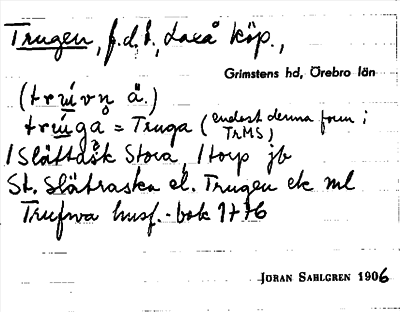 Trugen, f.d.t., Laxå köp.,
Grimstens hd, Örebro län
(tru̅vn ä.)
tru̅gå = Truga (endast denna form i TrMS)
/Slättask Stora, /torp jb
St. Slätraska el. Trugen ek ml
Trufwa husf.-bok 1776
JÖRAN SAHLGREN 1906